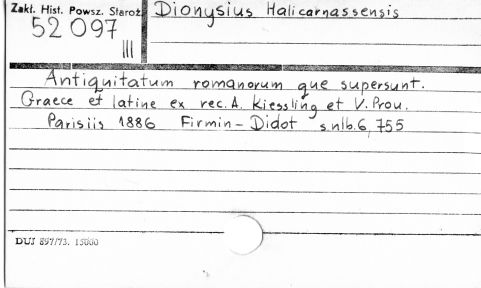 Zakł. Hist. Powsz. Staroż
Dionysius Halicarnassensis
52 097
III
Antiquitatum romanorum que supersunt.
Graece et latine ex rec. A. Kiessling et V. Prou.
Parisiis 1886 Firmin-Didot s.nlb.6, 755
DUJ 897/73. 15000